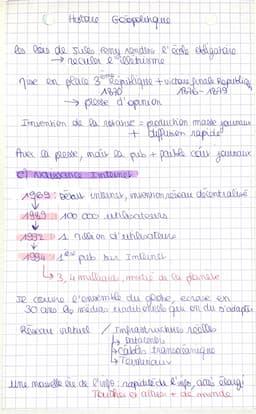 Histoire Géopolitique
les lois de Jules Ferry rendre l'école obligatoire
→ reculer l'illettrisme
Mise en place 3ème République + victoire finale Républiq
1870 1876-1879
→ presse d'opinion
Invention de la rotative = production masse journaux
+ diffusion rapide
Avec la presse, mais la pub + faible coût journaux
c) naissance Internet
1969 : début internet, invention réseau décentralisé
↓
1989 100 000 utilisateurs
↓
1992 → 1 million d'utilisateurs
↓
1994 1ère pub sur Internet
↳ 3,4 milliards, moitié de la planète
Il couvre l'ensemble du globe, en
30 ans les médias traditionnels qui on du s'adapter
Réseau virtuel / Infrastructures réelles
↳ Datacenter
↳ Câbles transocéanique
↳ Terminaux
Une nouvelle ère de l'info : rapidité de l'info, accès élargi
Touches et alliés + de monde